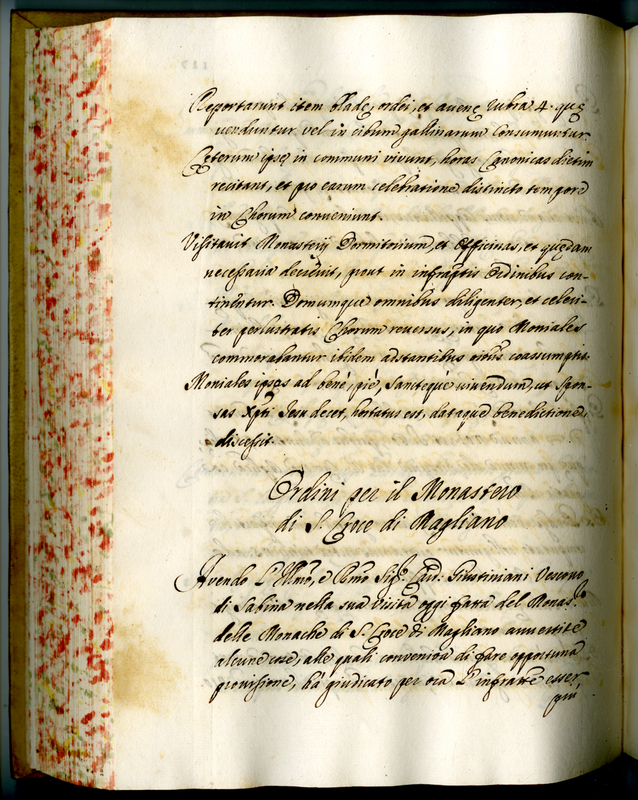 Reportarunt item bladę, ordei, et avenę rubia 4. quę
uenduntur vel in cibum gallinarum consumuntur.
Cęterum ipsę in communi vivunt, horas Canonicas dietim
recitant, et pro earum celebratione distincto tempore
in Chorum conveniunt.
Visitavit Monasterij Dormitorium, et Officinas, et quędam
necessaria decrevit, prout in infraptis Ordinibus con-
tinentur. Domumque omnibus diligenter, et celeri-
ter perlustratis Chorum reversus, in quo Moniales
commorabantur ibidem adstantibus oibus coassumptis
Moniales ipsas ad bene, pie, sancteque vivendum, ut spon-
sas Xpti Jesu decet, hortatus est, dataque benedictione,
discessit.
Ordini per il Monastero
di S. Croce di Magliano
Avendo l'Illmo, e Rmo Sigr. Card: Giustiniani Vescovo
di Sabina nella sua visita oggi fatta del Monasro.
delle Monache di S. Croce di Magliano avvertite
alcune cose, alle quali conveniva di fare opportuna
provisione, ha giudicato per ora l'infratte esser
più